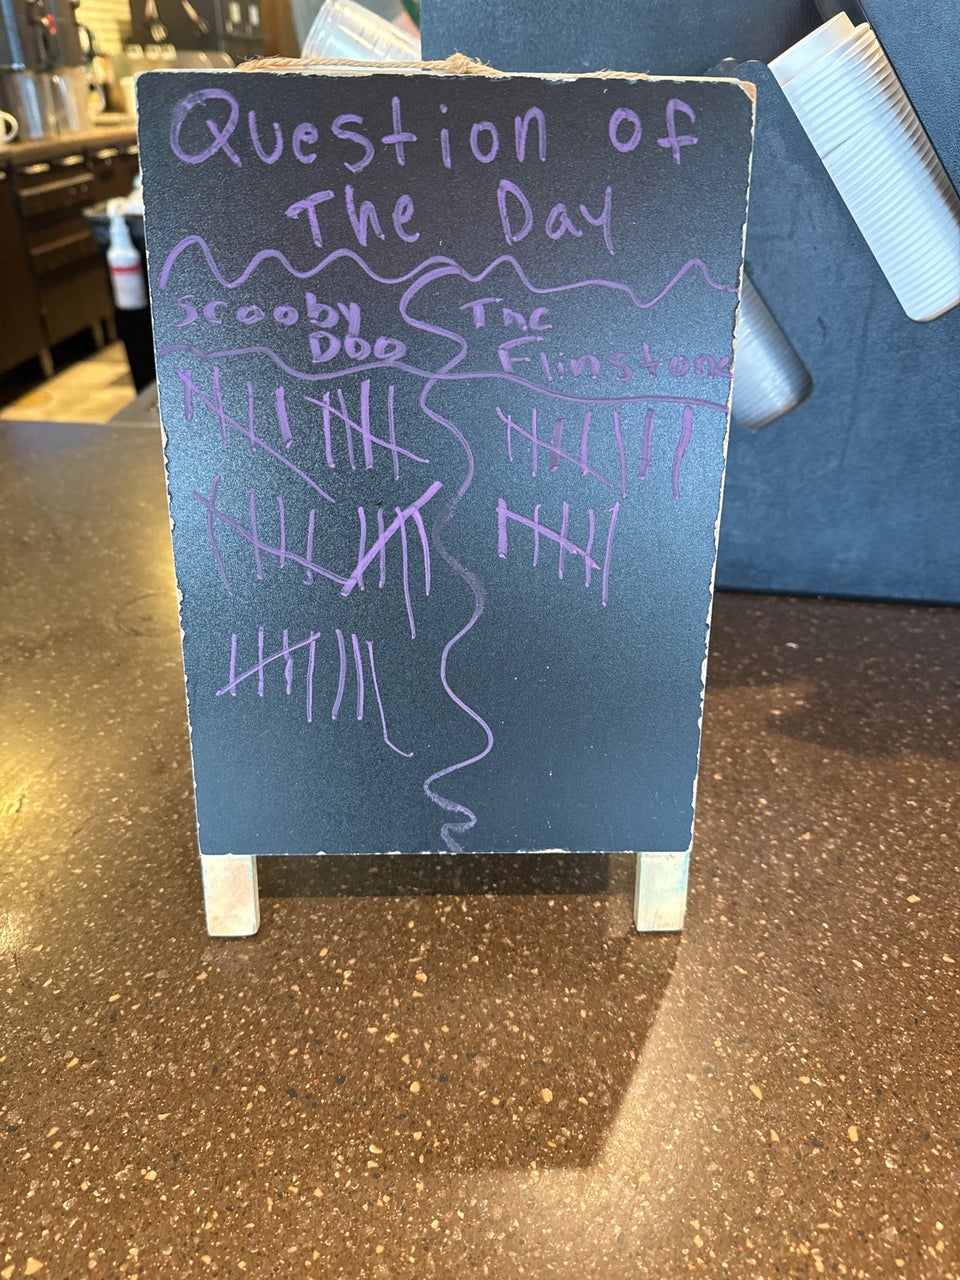 Question of
The Day
Scooby
Doo
The
Flinstone